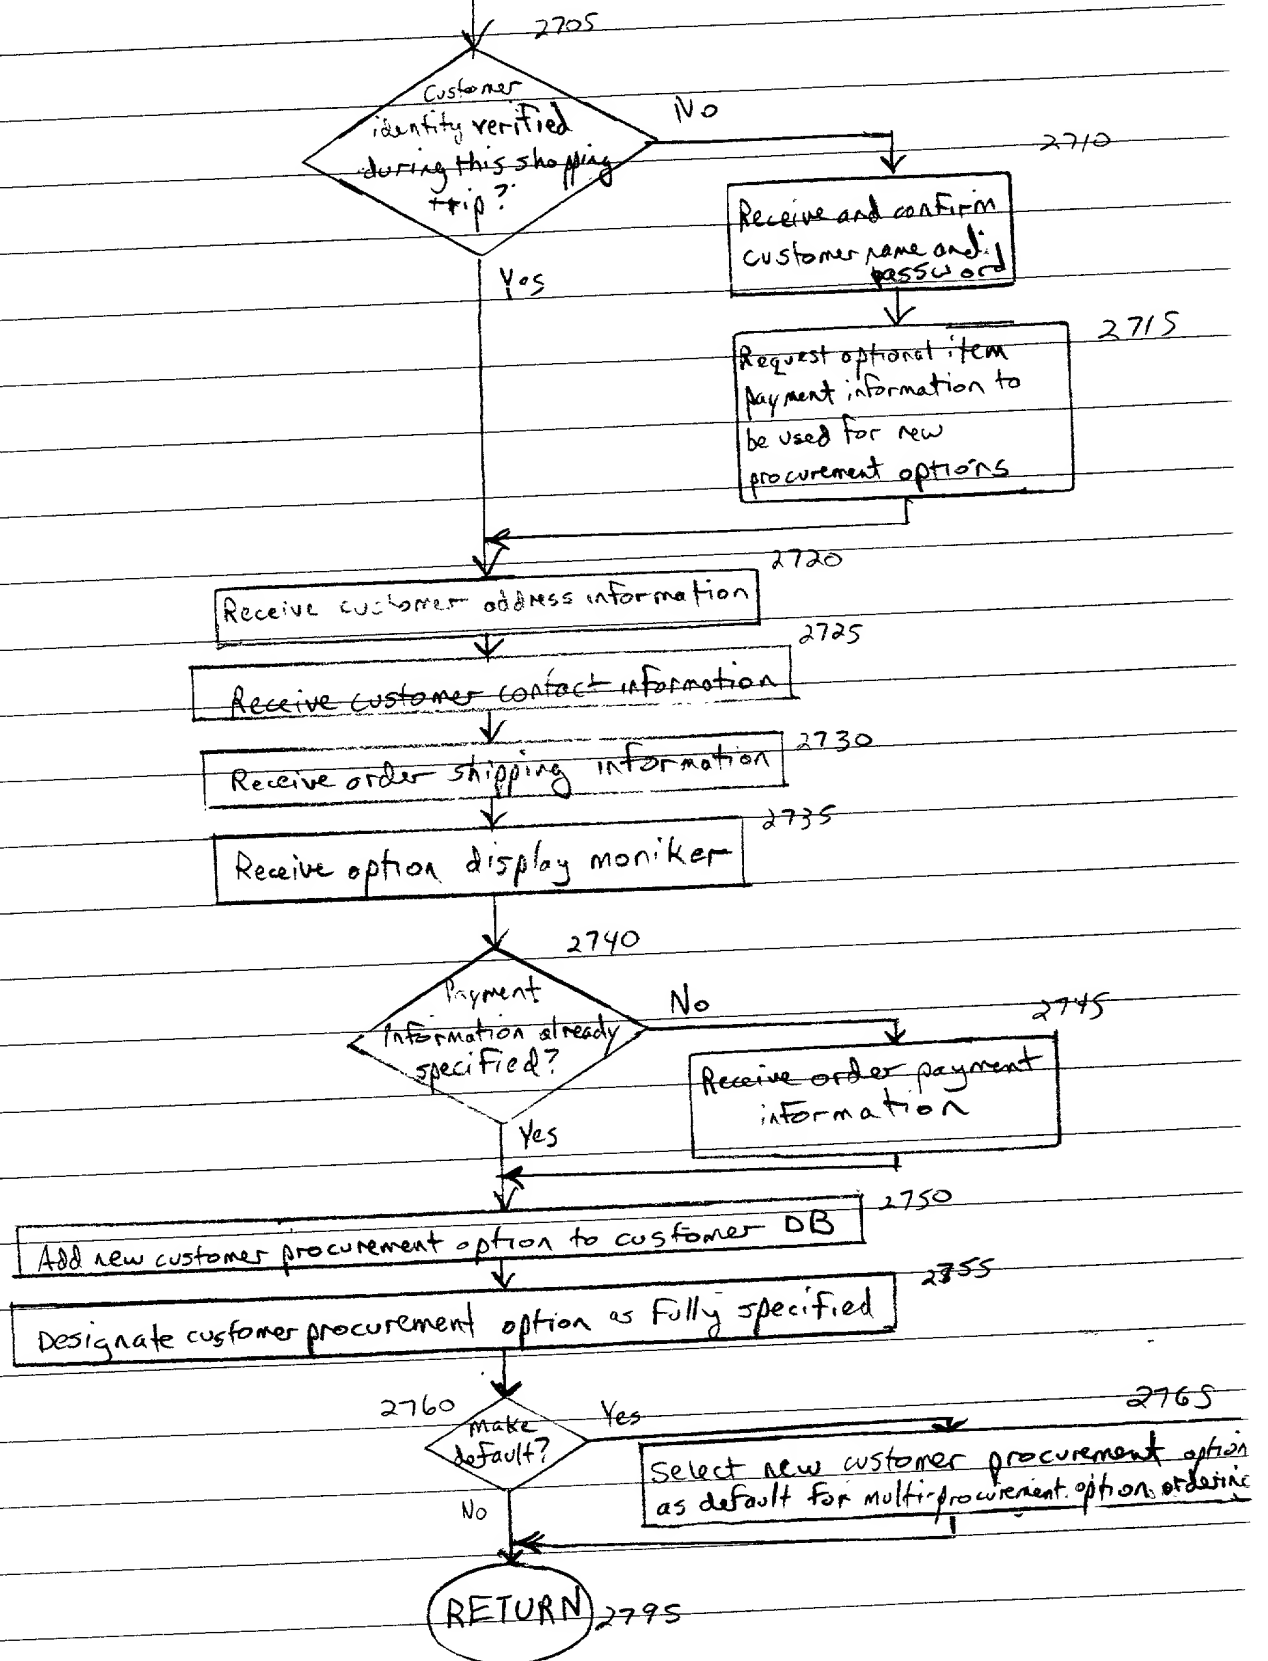 2705
Customer
identity verified
during this shopping
trip?
No
Yes
2710
Receive and confirm
customer name and
password
2715
Request optional item
payment information to
be used for new
procurement options
2720
Receive customer address information
2725
Receive customer contact information
2730
Receive order shipping information
2735
Receive option display moniker
2740
Payment
information already
specified?
No
Yes
2745
Receive order payment
information
2750
Add new customer procurement option to customer DB
2755
Designate customer procurement option as fully specified
2760
Make
default?
Yes
No
2765
Select new customer procurement option
as default for multi-procurement option ordering
RETURN
2795